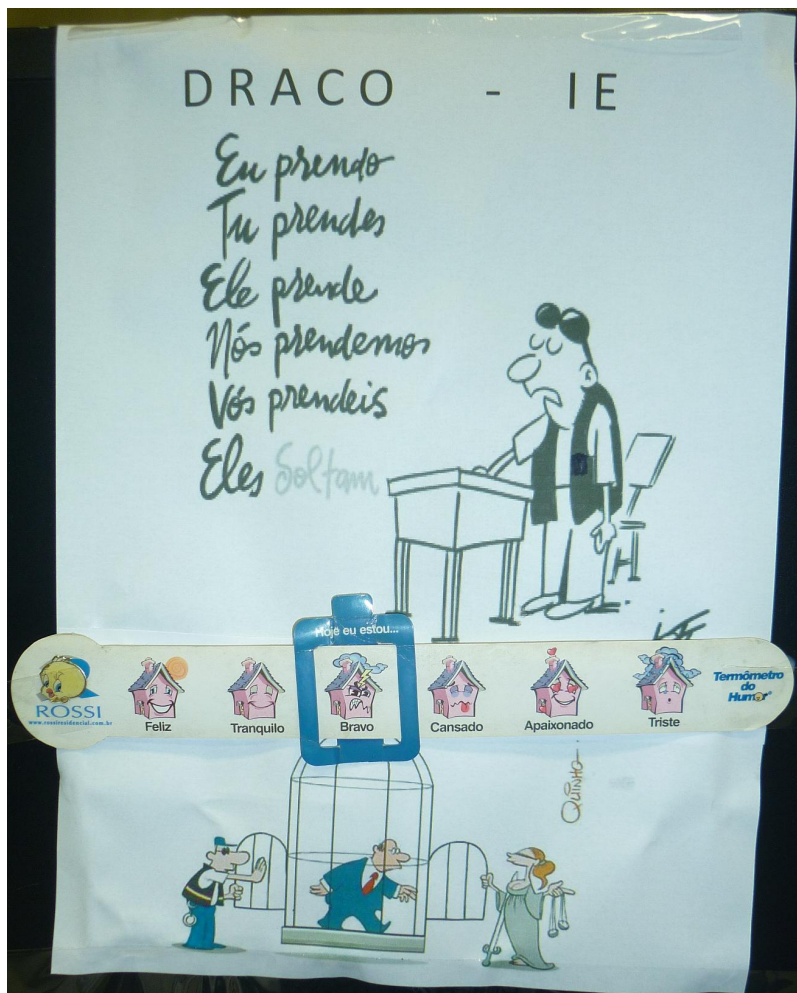 DRACO - IE
Eu prendo
Tu prendes
Ele prende
Nós prendemos
Vós prendeis
Eles Soltam
Hoje eu estou...
ROSSI
www.rossiresidencial.com.br
Feliz
Tranquilo
Bravo
Cansado
Apaixonado
Triste
Termômetro
do
Humor
QUINHO